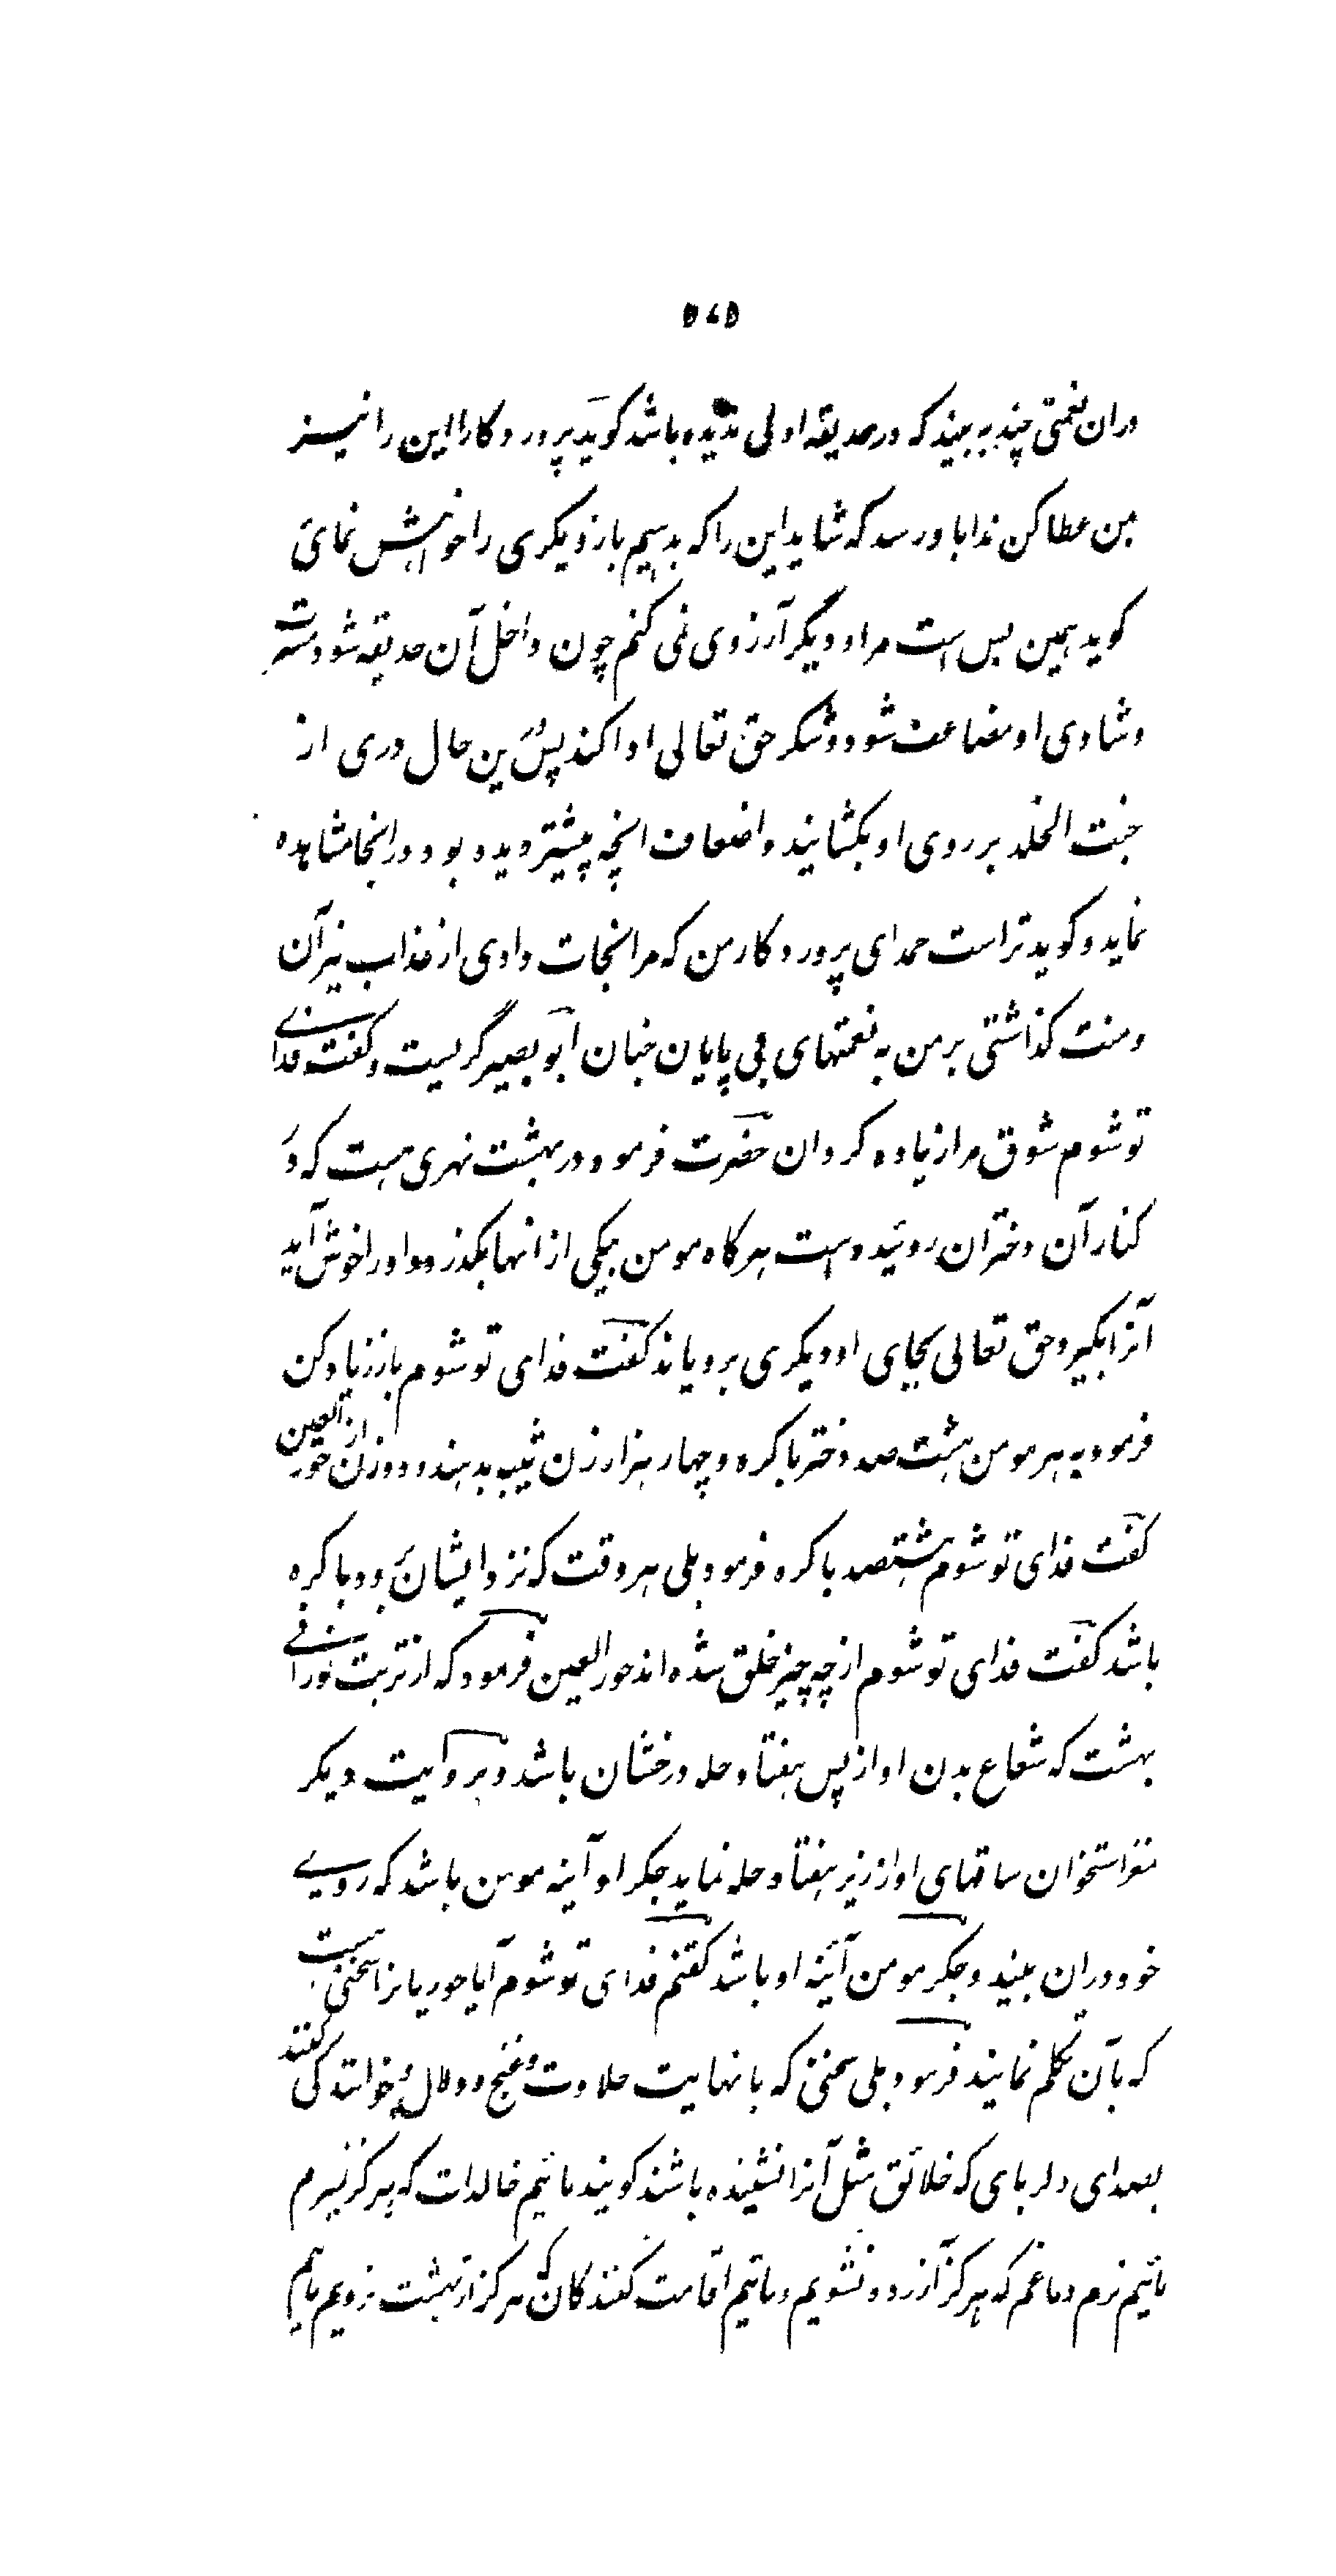 ۵۷۵
دران نعمتی چند به بیند که در حدیقه اولی ندیده باشد گوید پروردکارا این را نیز
بمن عطا کن ندا باو رسد که شاید این را که بدهیم باز دیکری را خواهش نمائی
کوید همین بس است مرا و دیگر آرزوی نمی کنم چون داخل آن حدیقه شود مسرت
و شادی او مضاعف شود و شکر حق تعالی ادا کند پس درین حال دری از
جنت الخلد بر روی او بکشایند و اضعاف انچه پیشتر دیده بود در انجا مشاهده
نماید و کوید تراست حمد ای پروردکار من که مرا نجات دادی از عذاب نیران
و منت کذاشتی بر من به نعمتهای بی پایان جنان ابو بصیر گریست و کفت فدای
تو شوم شوق مرا زیاده کردان حضرت فرمود در بهشت نهری هست که در
کنار آن دختران روئیده است هرکاه مومن بیکی از انها بکذرد و او را خوش آید
آنرا بکیرد حق تعالی بجای او دیکری برویاند کفت فدای تو شوم باز زیاد کن
فرمود به هر مومن هشت صد دختر باکره و چهار هزار زن ثیبه بدهند و دو زن از حور العین
کفت فدای تو شوم هشتصد باکره فرمود بلی هر وقت که نزد ایشان رود باکره
باشد کفت فدای تو شوم از چه چیز خلق شده اند حور العین فرمود که از تربت نورانی
بهشت که شعاع بدن او از پس هفتاد حله درخشان باشد و بروایت دیکر
مغز استخوان ساقهای او از زیر هفتاد حله نماید جکر او آینه مومن باشد که روی
خود دران بیند و جکر مومن آئینه او باشد کفتم فدای تو شوم آیا حوریانرا سخنی هست
که بآن تکلم نمایند فرمود بلی سخنی که با نهایت حلاوت و غنج و دلال و خوانندکی کنند
بصدای دلربای که خلائق مثل آنرا نشنیده باشند کویند مائیم خالدات که هرکز نمیرم
مائیم نرم دماغم که هرکز آزرده نشویم و مائیم اقامت کنندکان که هرکز از بهشت نرویم مائیم